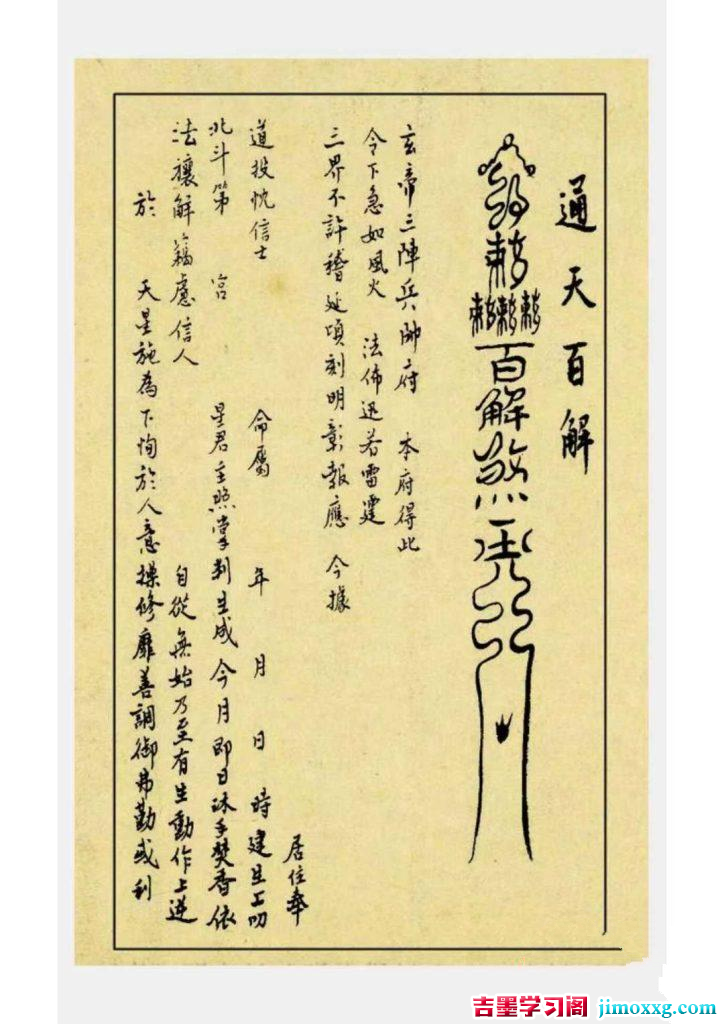 通天百解
百解煞
玄帝三陣兵帥府 本府得此
令下急如風火 法佈迅若雷霆
三界不許稽延頃刻明彰報應 今據
居住奉
道投忱信士 命屬 年 月 日 時建生上叨
北斗第 宮 星君主照掌判生成今月即日沐手焚香依
法禳解 慮信人 自從無始乃至有生動作上逆
於 天星施為下 於人意操修靡善調御弗勤或利
吉墨学习阁 jimoxxg.com